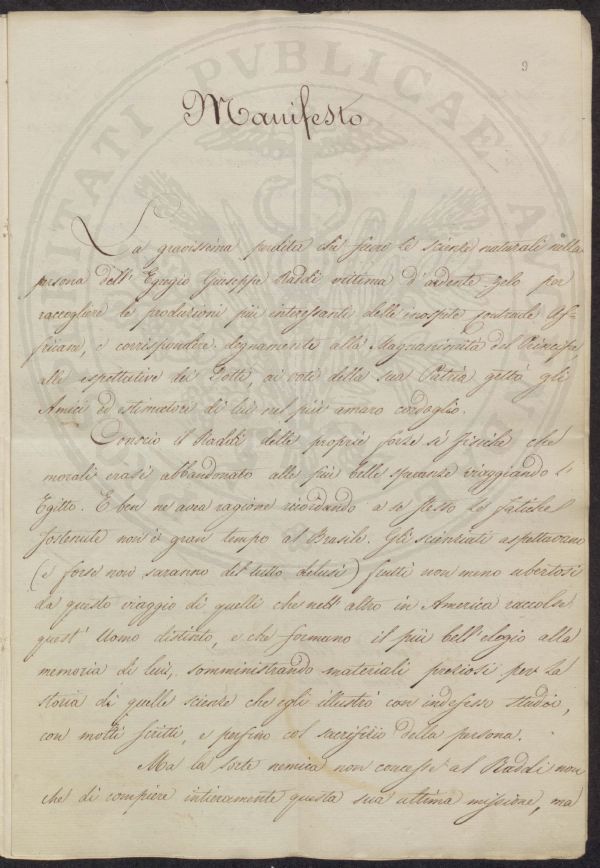 9
Manifesto
La gravissima perdita che fecero le scienze naturali nella
persona dell' Egregio Giuseppe Raddi vittima d'ardente zelo per
raccogliere le produzioni più interessanti delle inospite contrade Af-
fricane, e corrispondere degnamente alla Magnanimità del Principe,
alle espettative dei Dotti, ai voti della sua Patria gettò gli
Amici ed estimatori di lui nel più amaro cordoglio.
Conscio il Raddi delle proprie forze sì fisiche che
morali erasi abbandonato alle più belle speranze viaggiando l'
Egitto. E ben ne avea ragione ricordando a se stesso le fatiche
sostenute non è gran tempo al Brasile. Gli scienziati aspettavano
(e forse non saranno del tutto delusi) frutti non meno ubertosi
da questo viaggio di quelli che nell' altro in America raccolse
quest' Uomo distinto, e che formano il più bell' elogio alla
memoria di lui, somministrando materiali preziosi per la
storia di quelle scienze che egli illustrò con indefesso studio,
con molti scritti, e perfino col sacrifizio della persona.
Ma la sorte nemica non concesse al Raddi non
che di compiere intieramente questa sua ultima missione, ma